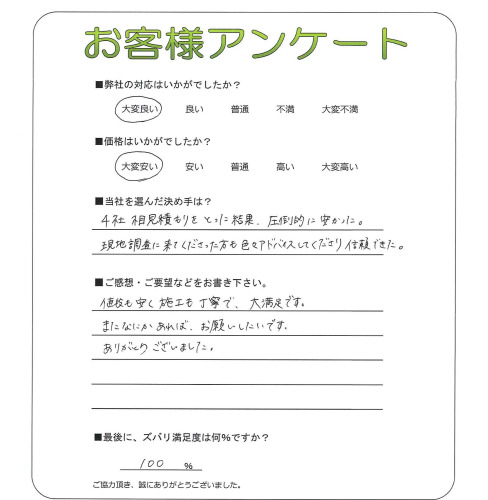 お客様アンケート
■弊社の対応はいかがでしたか？
大変良い 良い 普通 不満 大変不満
■価格はいかがでしたか？
大変安い 安い 普通 高い 大変高い
■当社を選んだ決め手は？
4社 相見積もりをとった結果、圧倒的に安かった。
現地調査に来てくださった方も色々アドバイスしてくださり信頼できた。
■ご感想・ご要望などをお書き下さい。
値段も安く施工も丁寧で、大満足です。
またなにかあれば、お願いしたいです。
ありがとうございました。
■最後に、ズバリ満足度は何%ですか？
100 %
ご協力頂き、誠にありがとうございました。